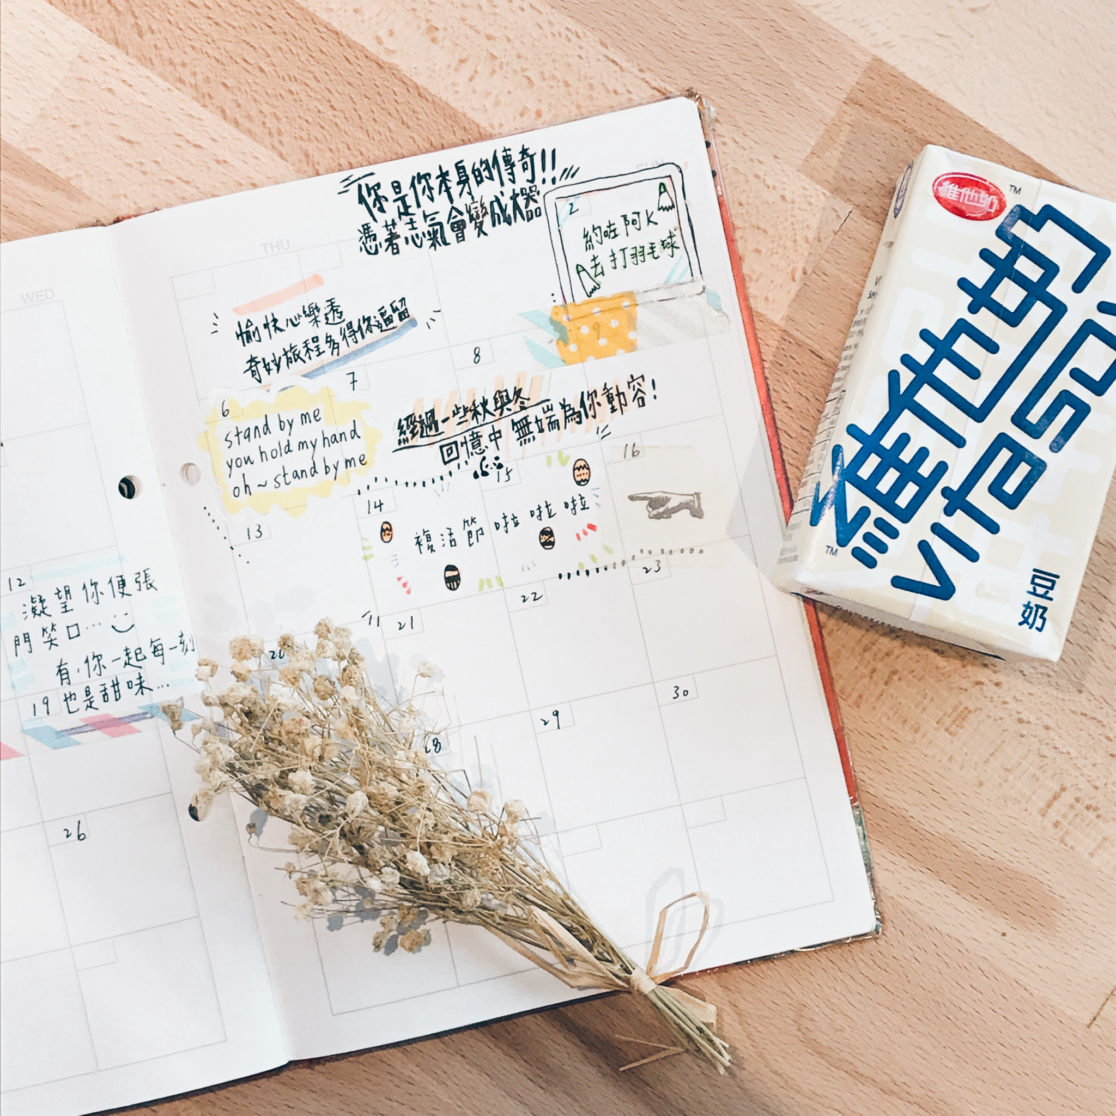 WED
THU
SUN
你是你本身的傳奇!!
憑著志氣會變成大器
2
約咗阿K
去打羽毛球
愉快心樂透
奇妙旅程多得你逗留
9
7
8
6
stand by me
you hold my hand
oh ~ stand by me
經過一些秋與冬
回憶中無端為你動容!
13
14
15
16
復活節啦啦啦
12
凝望你便張
門笑口...
有你一起每一刻
也是甜味...
19
20
21
22
23
26
28
29
30
維他奶
TM
維他奶
vitasoy
TM
豆奶